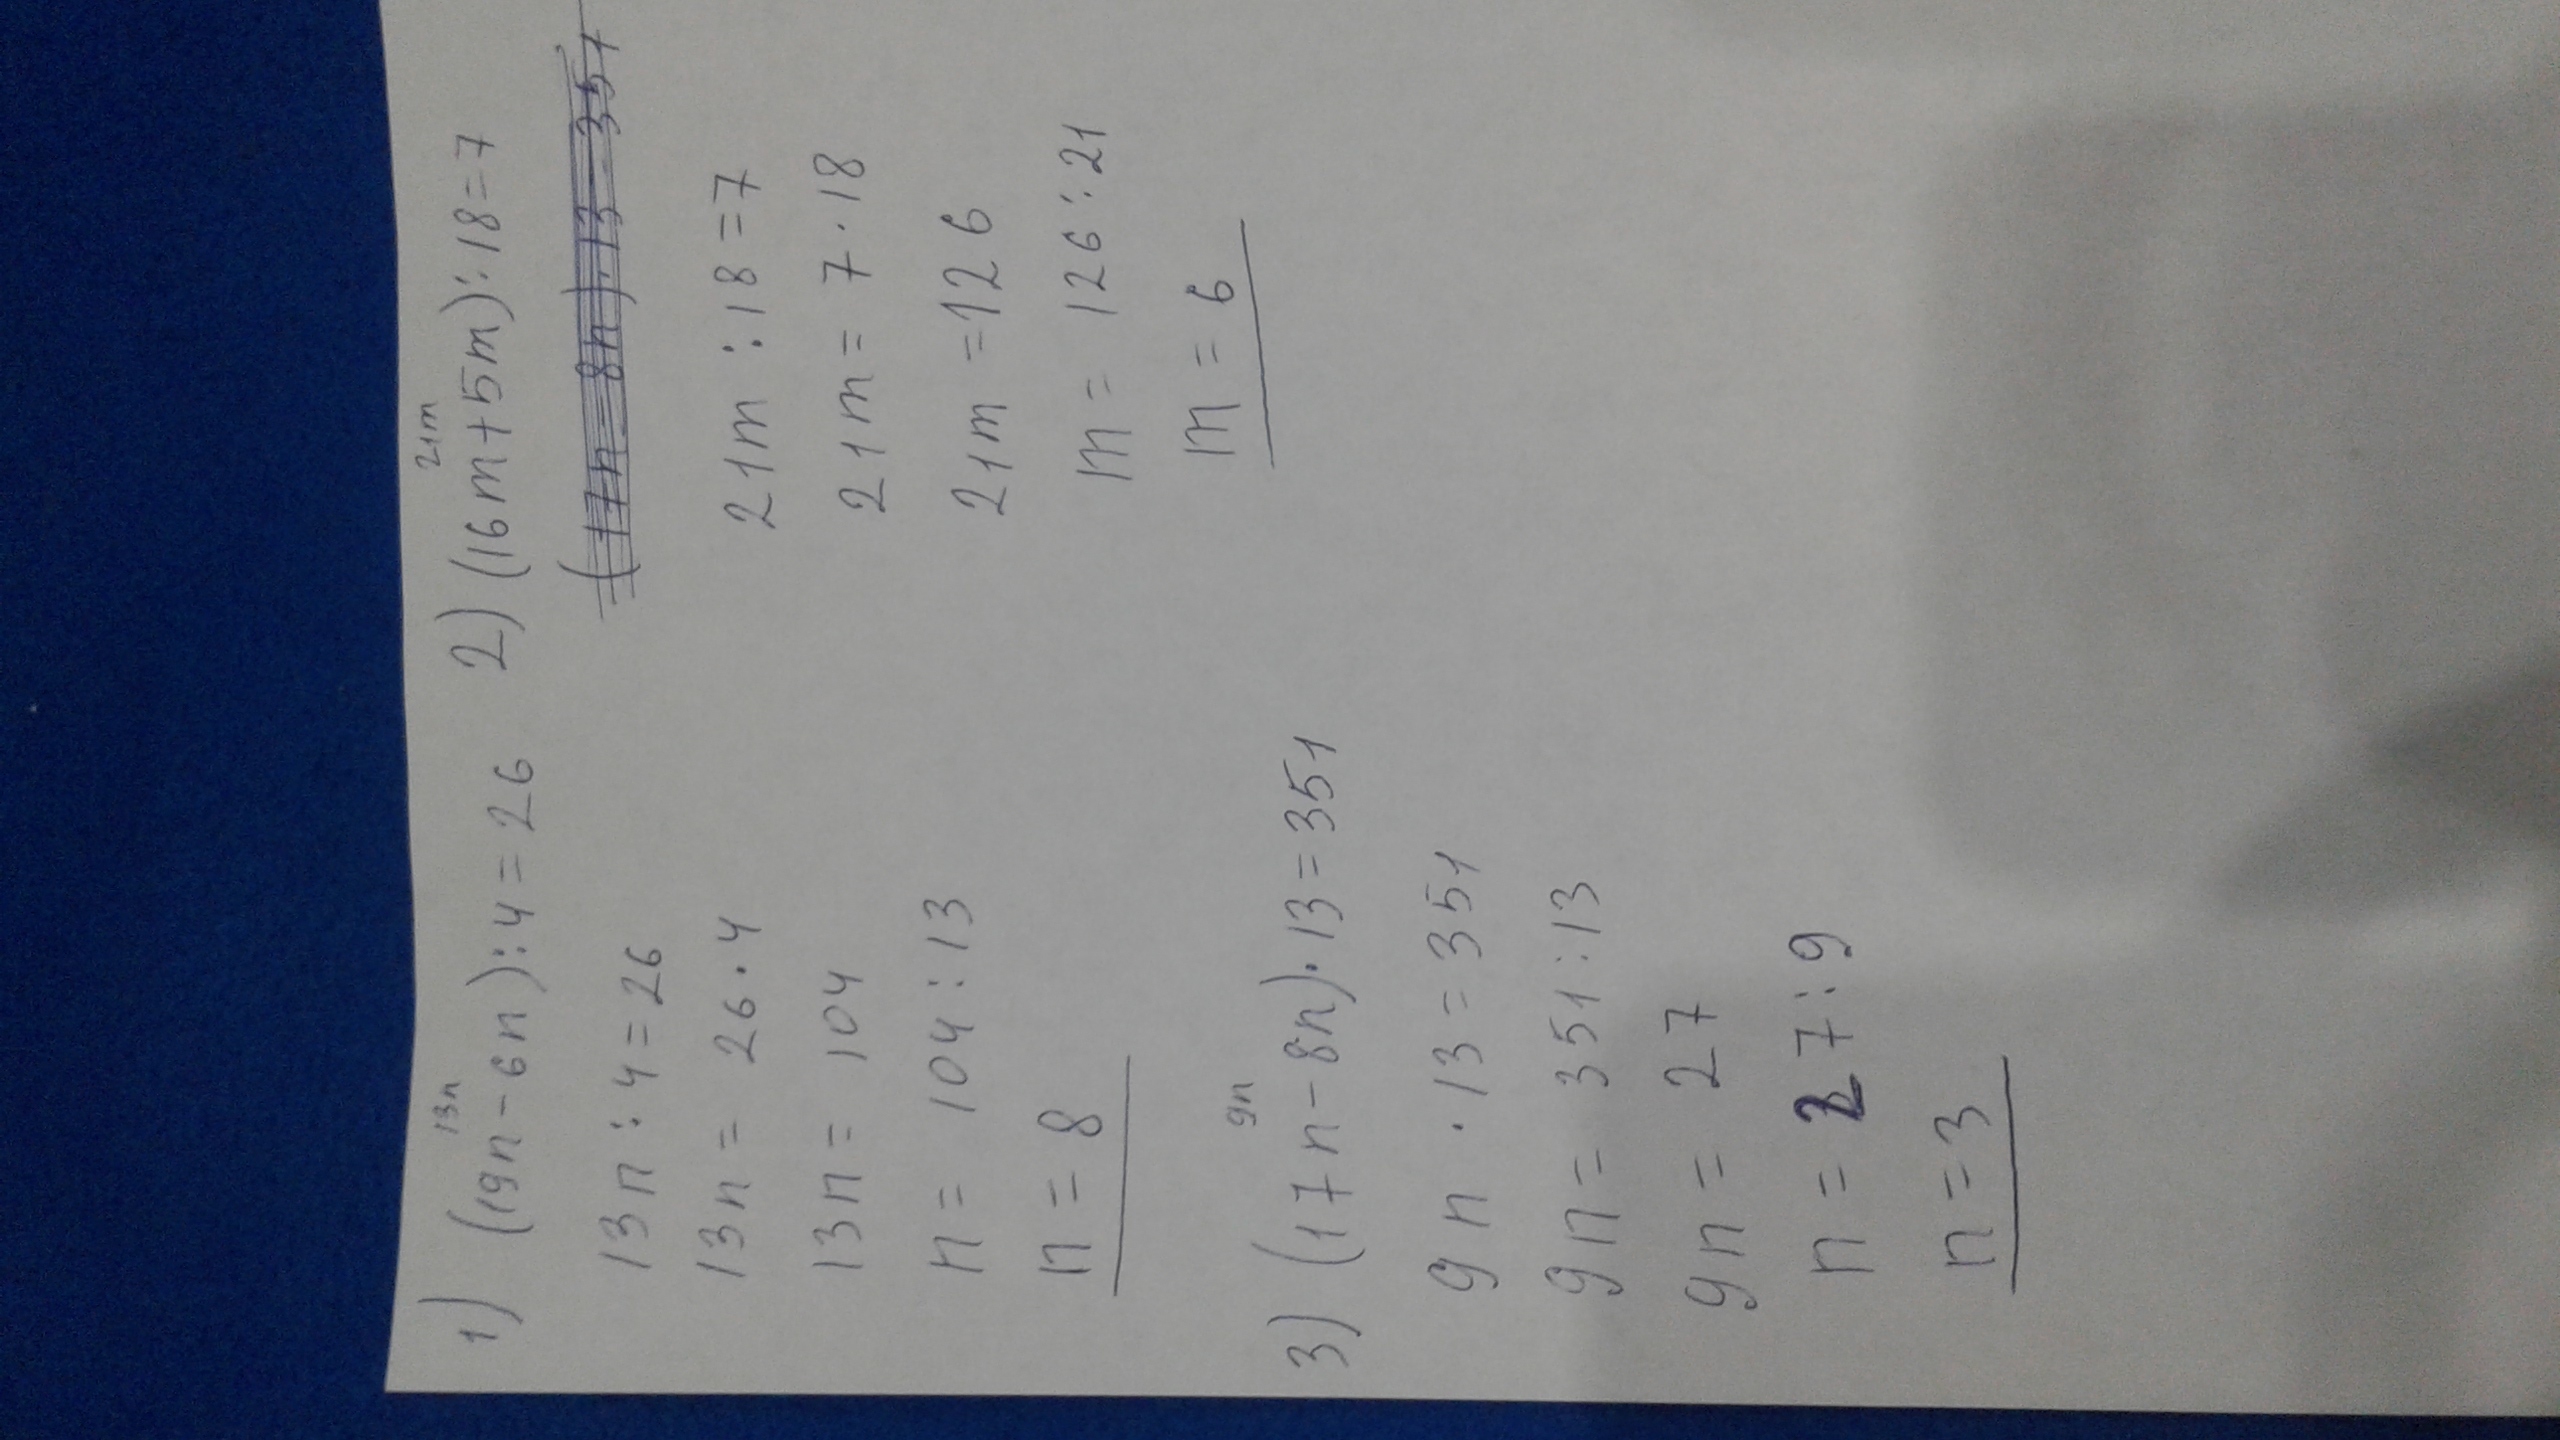 13n
1) (19n-6n):4=26
13n:4=26
13n=26·4
13n=104
n=104:13
n=8
21m
2) (16m+5m):18=7
(17n-8n)·13=351
21m:18=7
21m=7·18
21m=126
m=126:21
m=6
9n
3) (17n-8n)·13=351
9n·13=351
9n=351:13
9n=27
n=27:9
n=3